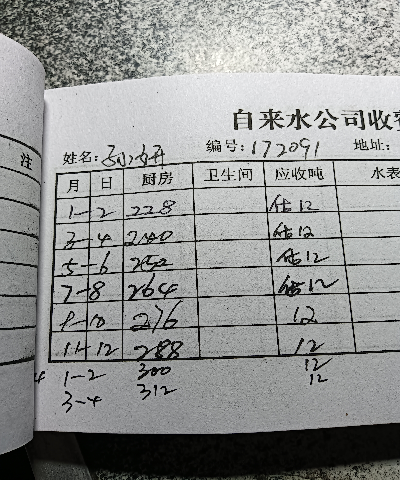 注
自来水公司收
姓名: 编号: 172091 地址:
月 日 厨房 卫生间 应收吨 水表
1-2 228 估12
3-4 240 估12
5-6 252 估12
7-8 264 估12
9-10 276 12
11-12 288 12
1-2 300 12
3-4 312 12